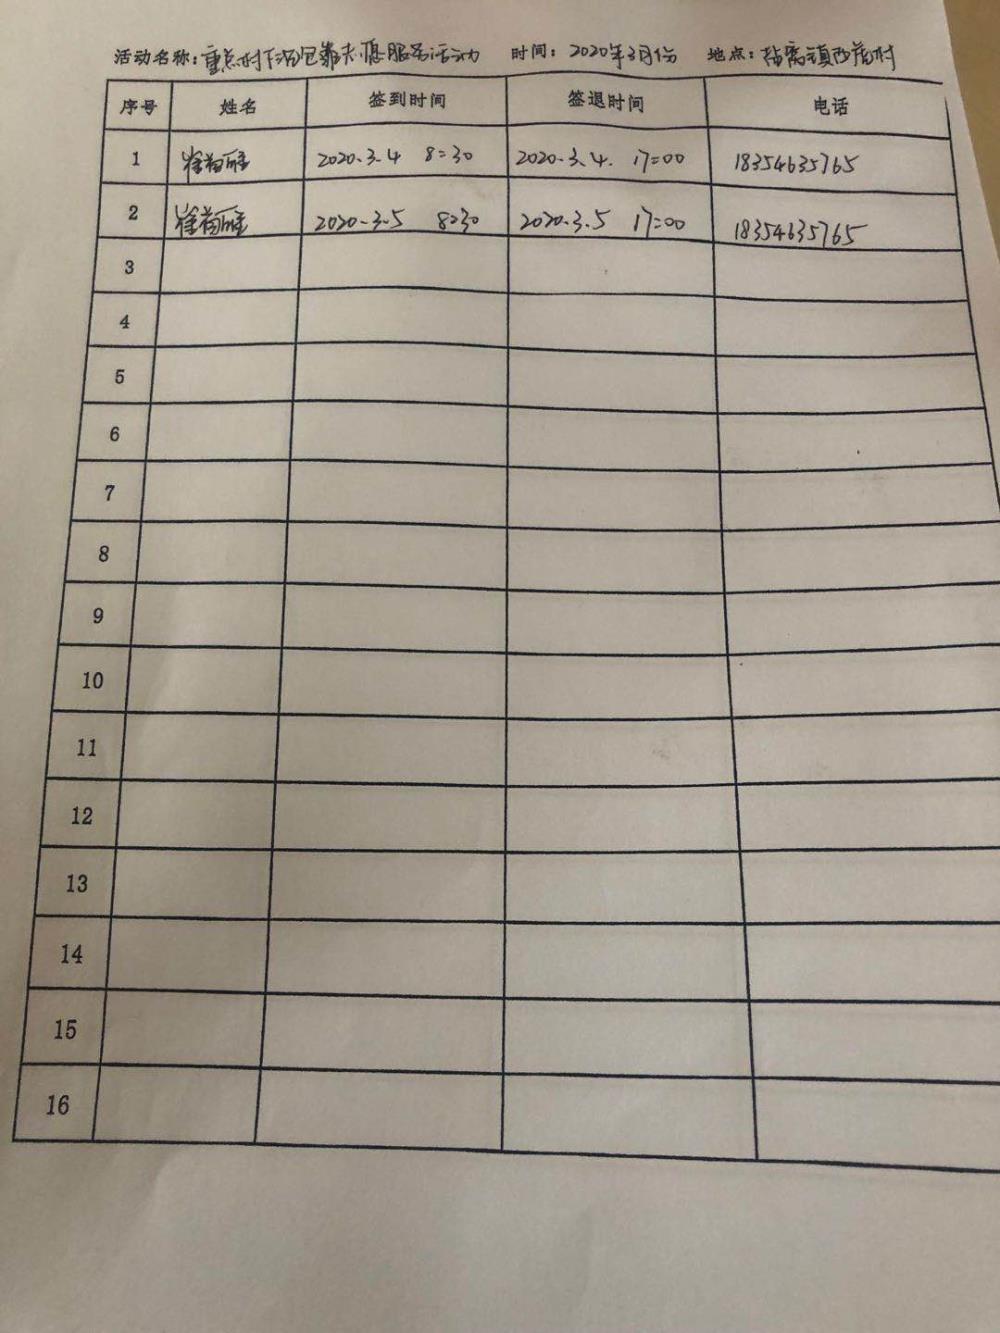 活动名称：重点村下沉包靠志愿服务活动 时间：2020年3月份 地点：镇西范村
序号 姓名 签到时间 签退时间 电话
1 2020.3.4 8:30 2020.3.4. 17:00 18354635765
2 2020.3.5 8:30 2020.3.5 17:00 18354635765
3
4
5
6
7
8
9
10
11
12
13
14
15
16